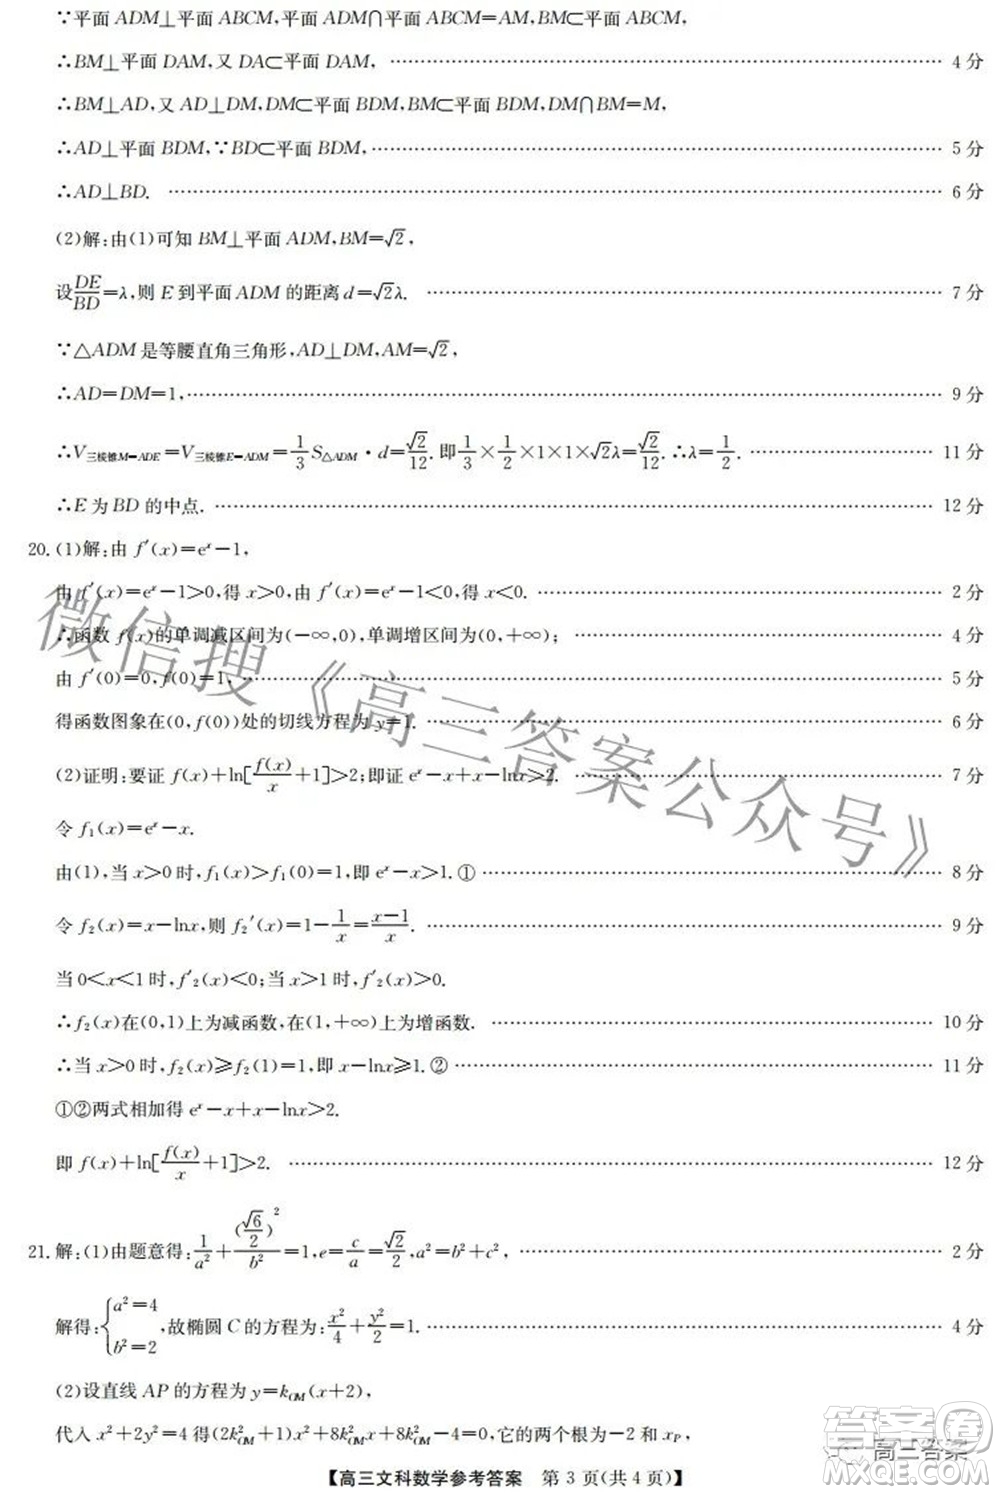 ∵平面 ADM⊥平面 ABCM,平面 ADM∩平面 ABCM=AM,BM⊂平面 ABCM,
∴BM⊥平面 DAM,又 DA⊂平面 DAM, …… 4 分
∴BM⊥AD,又 AD⊥DM,DM⊂平面 BDM,BM⊂平面 BDM,DM∩BM=M,
∴AD⊥平面 BDM,∵BD⊂平面 BDM, …… 5 分
∴AD⊥BD. …… 6 分
(2)解:由(1)可知 BM⊥平面 ADM,BM=√2,
设DE/BD=λ,则 E 到平面 ADM 的距离 d=√2λ. …… 7 分
∵△ADM 是等腰直角三角形,AD⊥DM,AM=√2,
∴AD=DM=1, …… 9 分
∴V三棱锥M-ADE=V三棱锥E-ADM=1/3 S△ADM·d=√2/12.即1/3×1/2×1×1×√2λ=√2/12.∴λ=1/2. …… 11 分
∴E 为 BD 的中点. …… 12 分
20.(1)解:由 f′(x)=eˣ-1,
由 f′(x)=eˣ-1>0,得 x>0,由 f′(x)=eˣ-1<0,得 x<0. …… 2 分
∴函数 f(x)的单调减区间为(-∞,0),单调增区间为(0,+∞); …… 4 分
由 f′(0)=0,f(0)=1, …… 5 分
得函数图象在(0,f(0))处的切线方程为 y=1. …… 6 分
(2)证明:要证 f(x)+ln[f(x)/x+1]>2;即证 eˣ-x+x-lnx>2. …… 7 分
令 f₁(x)=eˣ-x.
由(1),当 x>0 时,f₁(x)>f₁(0)=1,即 eˣ-x>1.① …… 8 分
令 f₂(x)=x-lnx,则 f₂′(x)=1-1/x=(x-1)/x. …… 9 分
当 0<x<1 时,f′₂(x)<0;当 x>1 时,f′₂(x)>0.
∴f₂(x)在(0,1)上为减函数,在(1,+∞)上为增函数. …… 10 分
∴当 x>0 时,f₂(x)≥f₂(1)=1,即 x-lnx≥1.② …… 11 分
①②两式相加得 eˣ-x+x-lnx>2.
即 f(x)+ln[f(x)/x+1]>2. …… 12 分
21.解:(1)由题意得:1/a²+(√6/2)²/b²=1,e=c/a=√2/2,a²=b²+c², …… 2 分
解得:{a²=4 b²=2,故椭圆 C 的方程为:x²/4+y²/2=1. …… 4 分
(2)设直线 AP 的方程为 y=k_OM(x+2),
代入 x²+2y²=4 得(2k²_OM+1)x²+8k²_OM x+8k²_OM-4=0,它的两个根为-2 和 x_P,
【高三文科数学参考答案 第 3 页(共 4 页)】
微信搜《高三答案公众号》
高三答案
答案圈
MXQE.COM